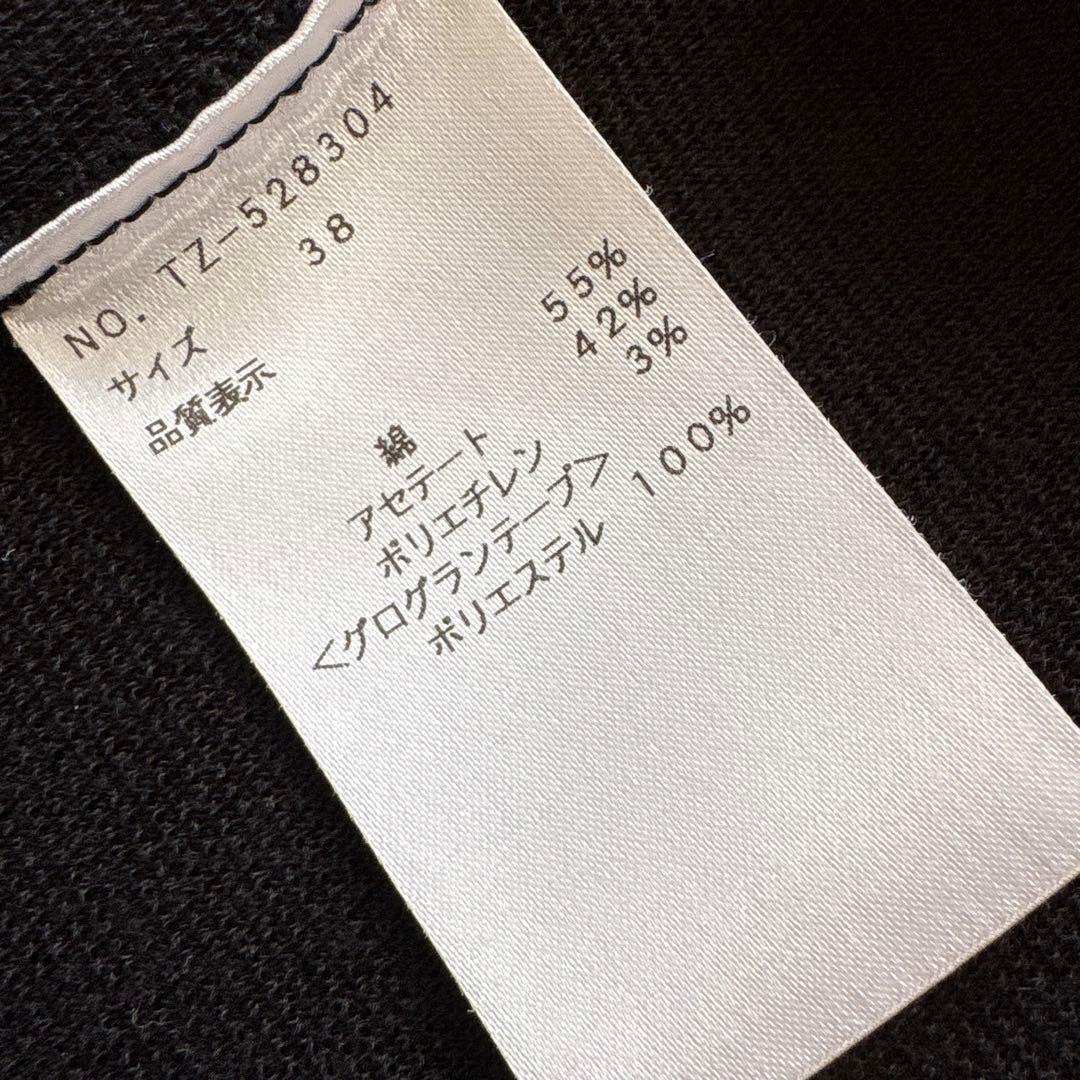 NO. TZ-528304
サイズ 38
品質表示
綿 55%
アセテート 42%
ポリエチレン 3%
<グログランテープ>
ポリエステル 100%